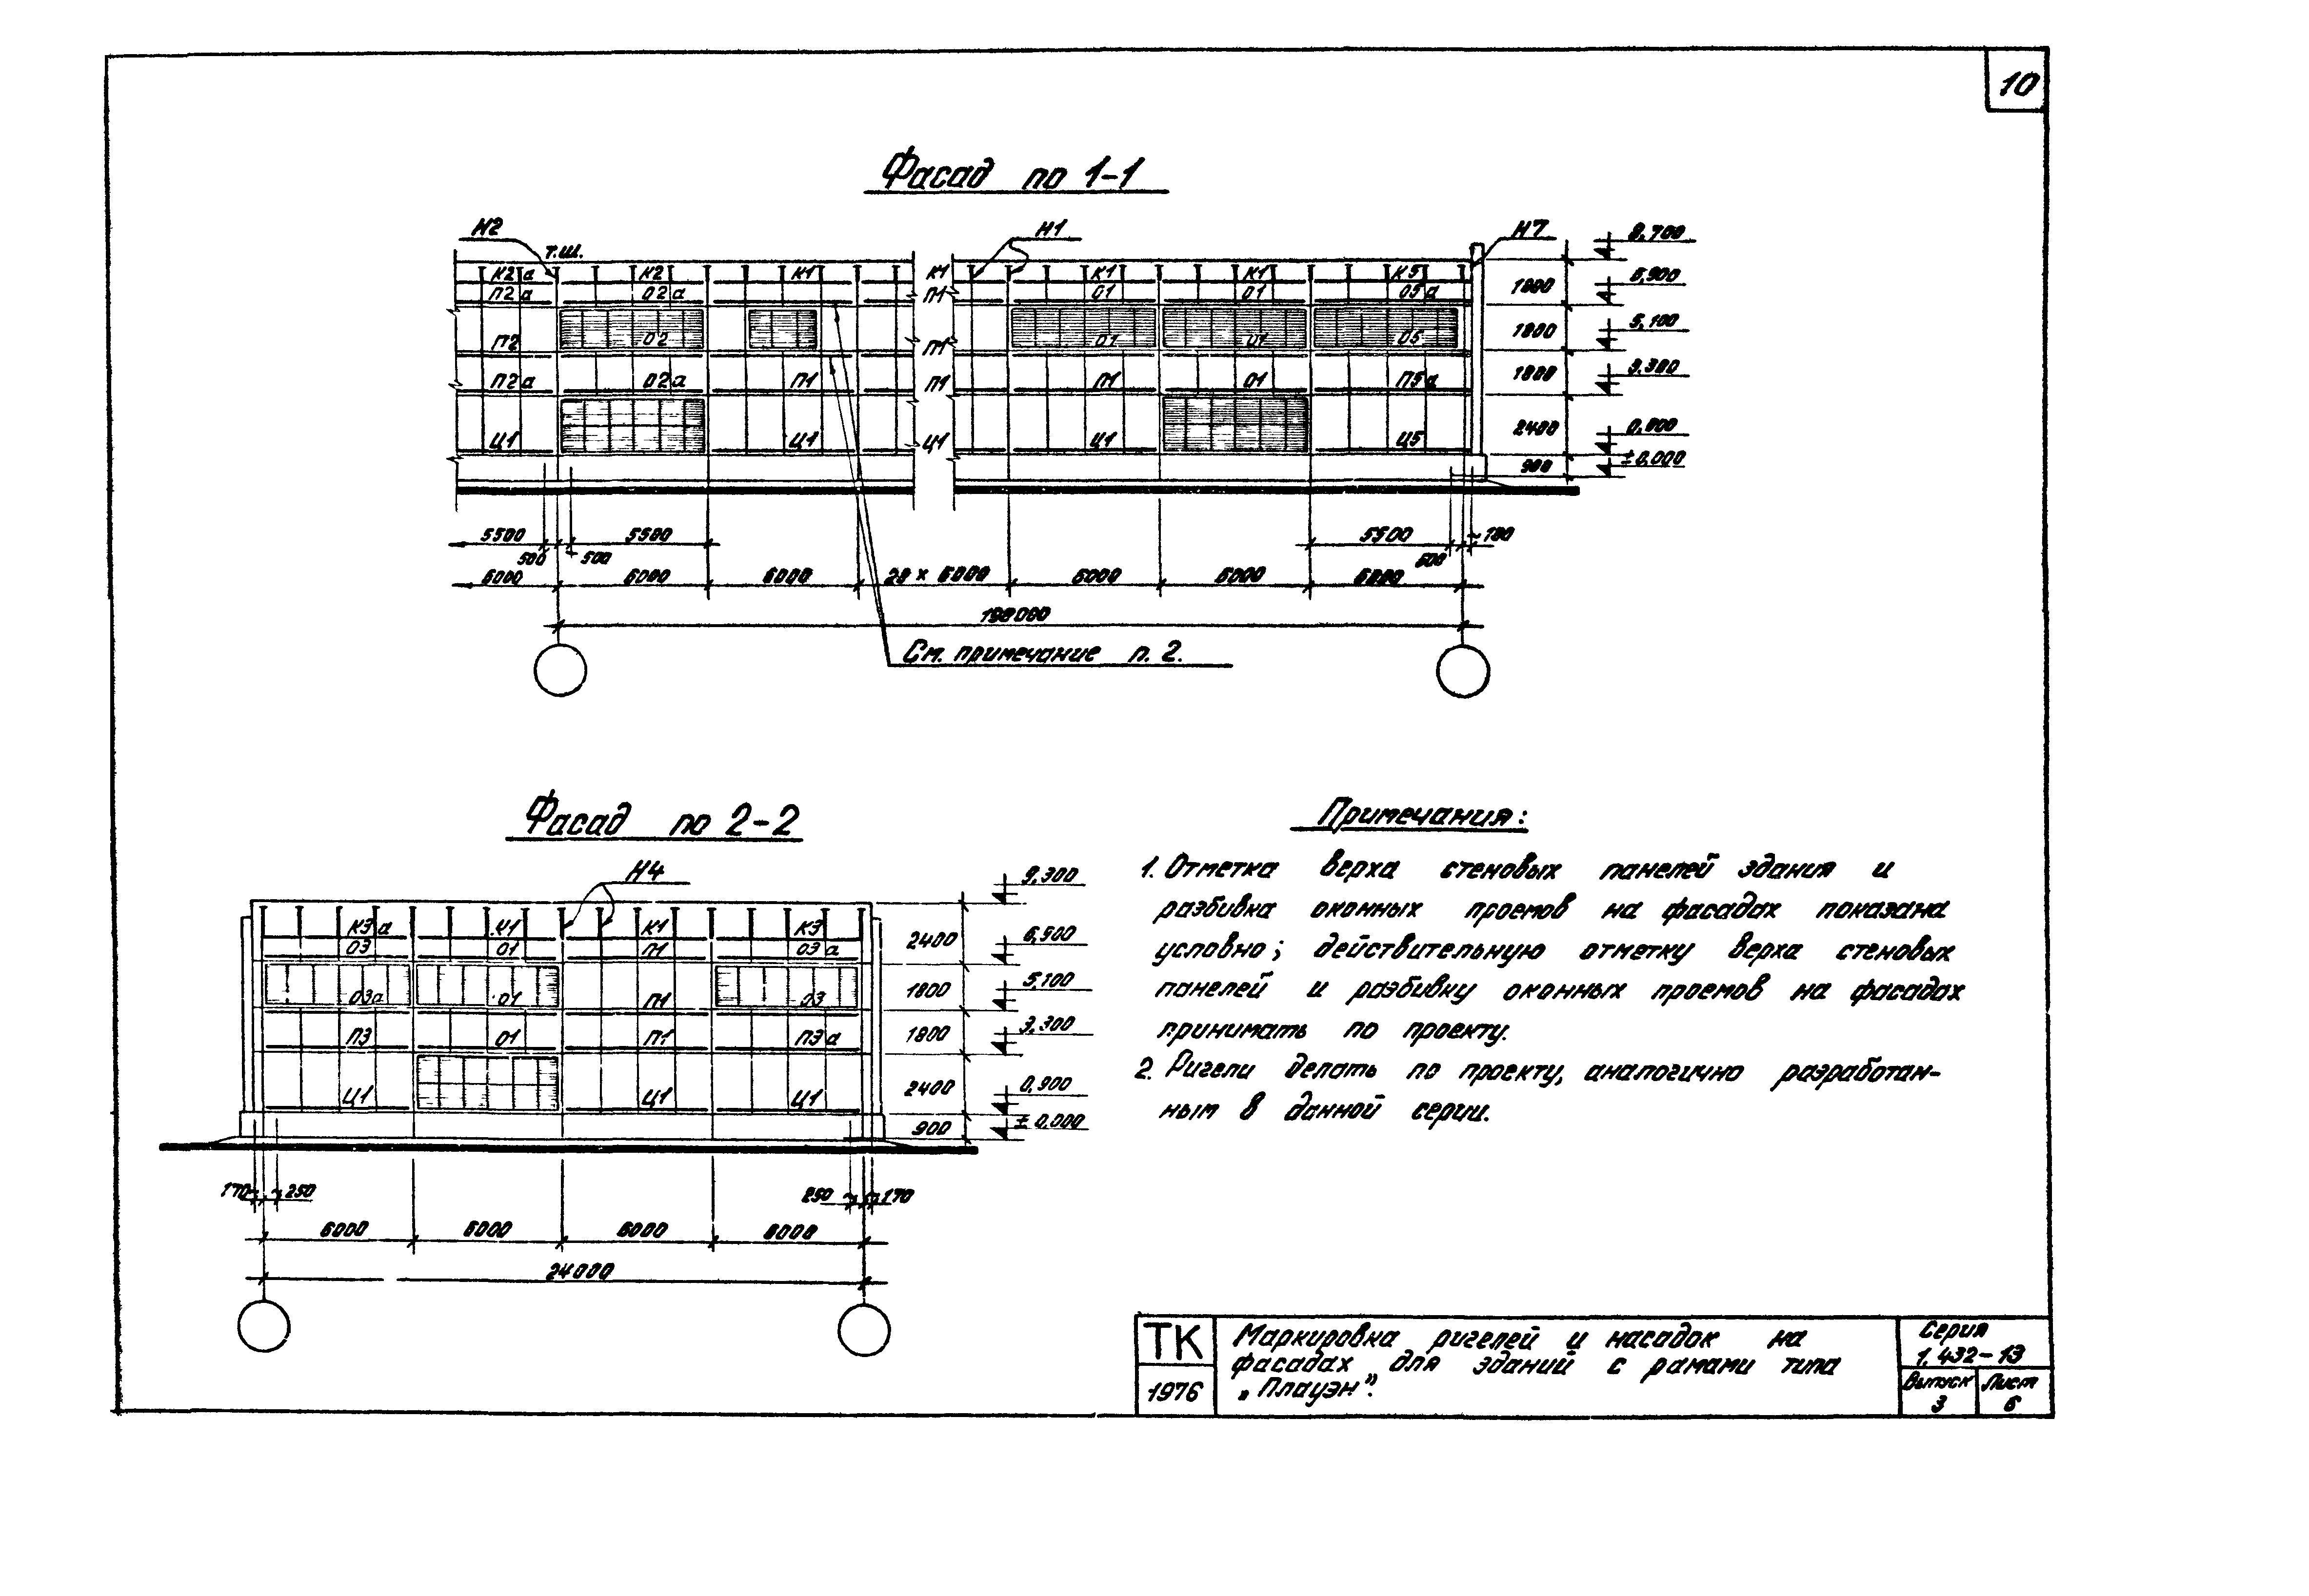 10
Фасад по 1-1
Н2
т.ш.
Н1
Н7
8,700
К2а К2 К1 К1 К1 К1 К5
П2а О2а П1 О1 О1 О5а
1800
6,900
П2 О2 П1 О1 О1 О5
1800
5,100
П2а О2а П1 П1 П1 О1 П5а
1800
3,300
Ц1 Ц1 Ц1 Ц1 Ц5
2400
0,900
900
±0,000
5500 500 500 5500 5500 500 180
6000 6000 6000 28 × 6000 6000 6000 6000
198000
См. примечание п. 2.
Фасад по 2-2
Н4
9,300
К3а К1 К1 К3
О3 О1 П1 О3а
2400
6,900
О3а О1 П1 О3
1800
5,100
П3 О1 П1 П3а
1800
3,300
Ц1 Ц1 Ц1
2400
0,900
900
±0,000
170 250 250 170
6000 6000 6000 6000
24000
Примечания:
1. Отметка верха стеновых панелей здания и
разбивка оконных проемов на фасадах показана
условно; действительную отметку верха стеновых
панелей и разбивку оконных проемов на фасадах
принимать по проекту.
2. Ригели делать по проекту, аналогично разработан-
ным в данной серии.
ТК
1976
Маркировка ригелей и насадок на
фасадах для зданий с рамами типа
„Плауэн".
Серия
1.432-13
Выпуск Лист
3 6